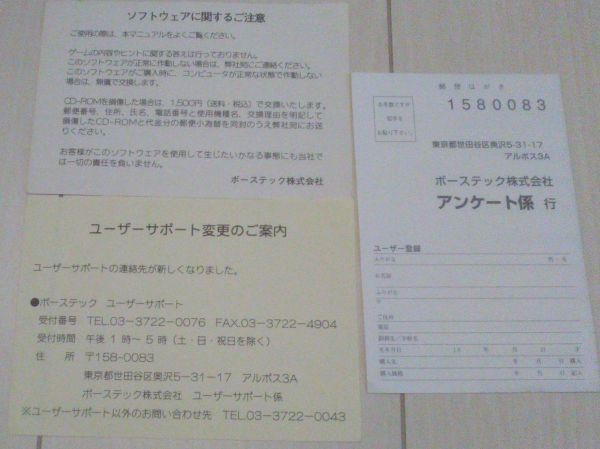 ソフトウェアに関するご注意
ご使用の際は、本マニュアルをよくご覧ください。
ゲームの内容やヒントに関する答えは行っておりません。
このソフトウェアが正常に作動しない場合は、弊社宛にご連絡ください。
このソフトウェアがご購入時に、コンピュータが正常な状態で作動しない
場合は、無償で交換します。
CD-ROMを損傷した場合は、1,500円（送料・税込）で交換いたします。
郵便番号、住所、氏名、電話番号と使用機種名、交換理由を明記して
損傷したCD-ROMと代金分の郵便小為替を同封のうえ弊社宛にお送
りください。
お客様がこのソフトウェアを使用して生じたいかなる事態にも当社で
は一切の責任を負いません。
ボーステック株式会社
ユーザーサポート変更のご案内
ユーザーサポートの連絡先が新しくなりました。
●ボーステック ユーザーサポート
受付番号 TEL.03-3722-0076 FAX.03-3722-4904
受付時間 午後1時～5時（土・日・祝日を除く）
住 所 〒158-0083
東京都世田谷区奥沢5-31-17 アルボス3A
ボーステック株式会社 ユーザーサポート係
※ユーザーサポート以外のお問い合わせ先 TEL.03-3722-0043
郵便はがき
お手数ですが
切手を
お貼り下さい。
1580083
東京都世田谷区奥沢5-31-17
アルボス3A
ボーステック株式会社
アンケート係 行
ユーザー登録
ふりがな 男・女
お名前
ふりがな
〒
ご住所
電話
生年月日 19 年 月 日 才
購入店 年 月 日 購入
購入価格 年 月 日 記入